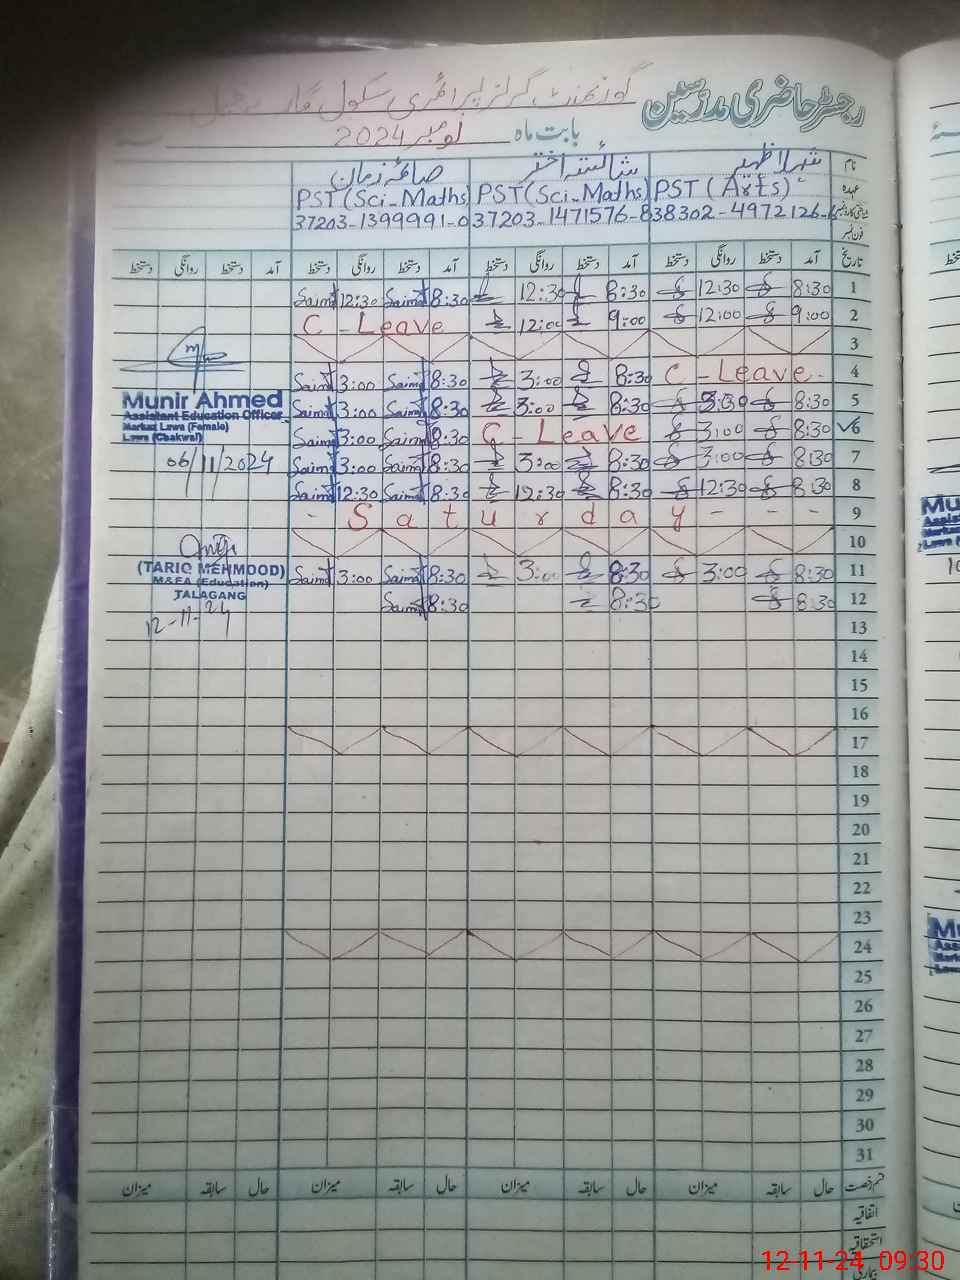 رجسٹر حاضری مدرسین
گورنمنٹ گرلز پرائمری سکول
بابت ماہ نومبر 2024
نام شہلا ظہیر شائستہ اختر صائمہ زمان
عہدہ PST (Arts) PST (Sci-Maths) PST (Sci-Maths)
38302-4972126- 37203-1471576-8 37203-1399991-0
فون نمبر
تاریخ آمد دستخط روانگی دستخط آمد دستخط روانگی دستخط آمد دستخط روانگی دستخط آمد دستخط روانگی دستخط
1 8:30 12:30 8:30 12:30 8:30 Saima 12:30 Saima
2 9:00 12:00 9:00 12:00 C-Leave
3
4 C-Leave 8:30 3:00 8:30 Saima 3:00 Saima
5 8:30 3:00 8:30 3:00 8:30 Saima 3:00 Saima
6 8:30 3:00 C-Leave 8:30 Saima 3:00 Saima
7 8:30 3:00 8:30 3:00 8:30 Saima 3:00 Saima
8 8:30 12:30 8:30 12:30 8:30 Saima 12:30 Saima
9 - Saturday - - -
10
11 8:30 3:00 8:30 3:00 8:30 Saima 3:00 Saima
12 8:30 8:30 8:30 Saima
13
14
15
16
17
18
19
20
21
22
23
24
25
26
27
28
29
30
31
Munir Ahmed
Assistant Education Officer
Markaz Lawa (Female)
Lawa (Chakwal)
06/11/2024
(TARIQ MEHMOOD)
M&EA (Education)
TALAGANG
12-11-24
قسم رخصت حال سابقہ میزان حال سابقہ میزان حال سابقہ میزان حال سابقہ میزان
اتفاقیہ
استحقاقیہ
بیماری
12-11-24 09:30